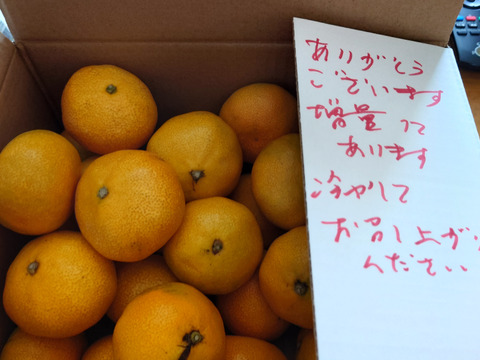 ありがとう
ございます
増量して
あります
冷やして
お召し上がり
ください